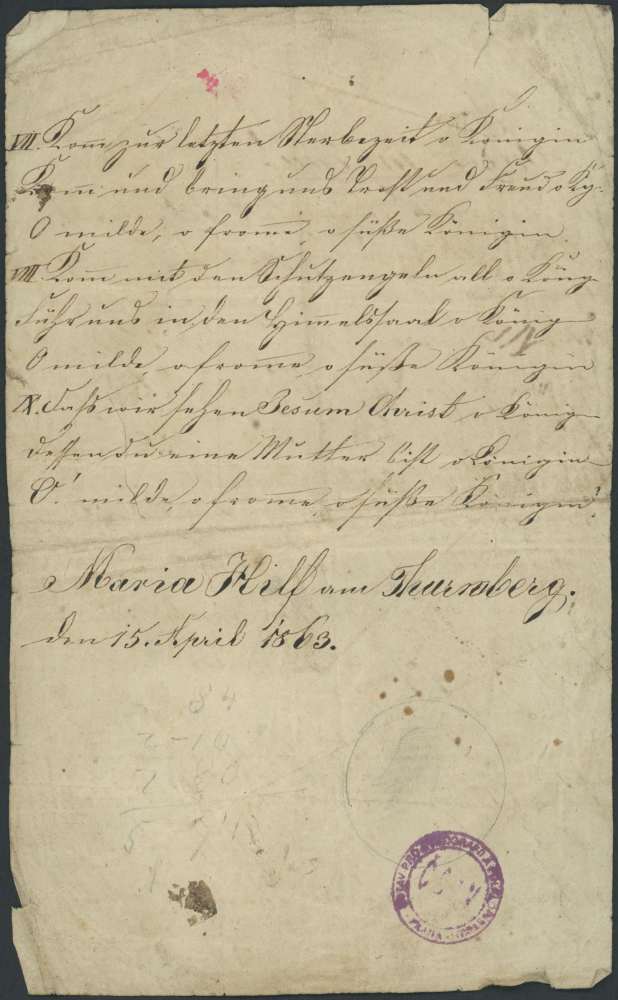 VII. Kom̅ zur letzten Sterbezeit o Königin
Kom̅ und bring uns Trost und Freud o Kg.
O milde, o from̅e, o süße Königin.
VIII. Kom̅ mit den Schutzengeln all o König
Führ uns in den Him̅elssaal o König
O milde, o from̅e, o süße Königin
IX. Daß wir sehen Jesum Christ o König
Dessen du eine Mutter bist o Königin
O! milde, o from̅e, o süße Königin!
Maria Hilf am Thurmberg.
den 15. April 1863.
84
2-14